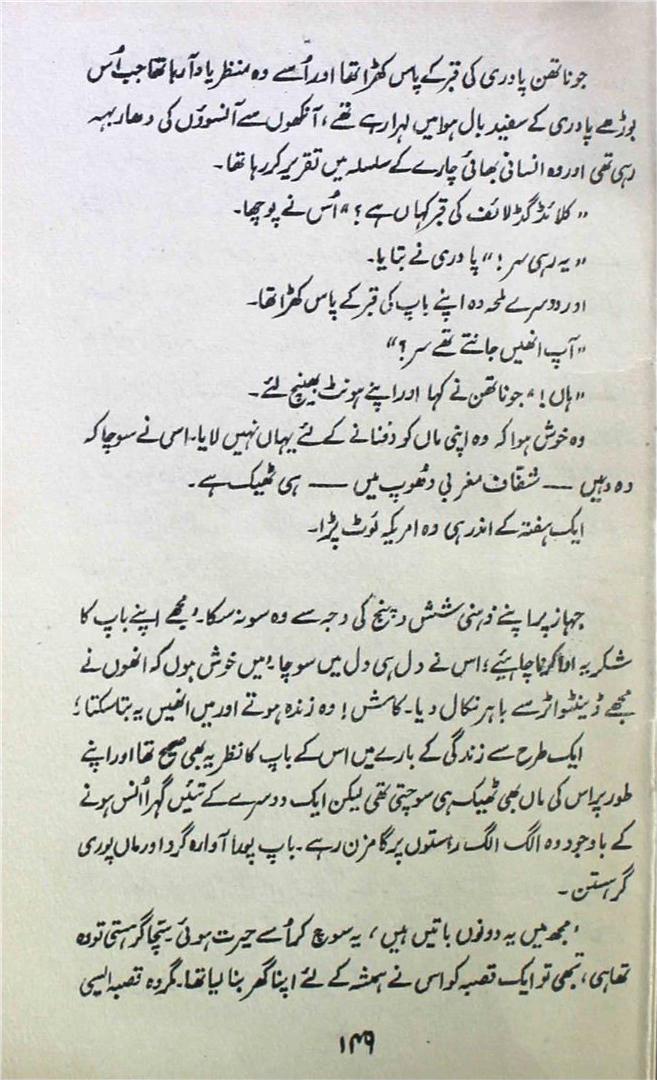 جوناتھن پادری کی قبر کے پاس کھڑا تھا اور اُسے وہ منظر یاد آ رہا تھا جب اُس
بوڑھے پادری کے سفید بال ہوا میں لہرا رہے تھے، آنکھوں سے آنسوؤں کی دھار بہہ
رہی تھی اور وہ انسانی بھائی چارے کے سلسلہ میں تقریر کر رہا تھا۔
"کلائڈ گڈ لائف کی قبر کہاں ہے؟" اُس نے پوچھا۔
"یہ رہی سر!" پادری نے بتایا۔
اور دوسرے لمحہ وہ اپنے باپ کی قبر کے پاس کھڑا تھا۔
"آپ انھیں جانتے تھے سر؟"
"ہاں!" جوناتھن نے کہا اور اپنے ہونٹ بھینچ لئے۔
وہ خوش ہوا کہ وہ اپنی ماں کو دفنانے کے لئے یہاں نہیں لایا۔ اسی نے سوچا کہ
وہ وہیں — شفّاف مغربی دھوپ میں — ہی ٹھیک ہے۔
ایک ہفتہ کے اندر ہی وہ امریکہ لَوٹ پڑا۔
جہاز پر اپنے ذہنی شش و پنج کی وجہ سے وہ سو نہ سکا۔ 'مجھے اپنے باپ کا
شکریہ ادا کرنا چاہیئے؛ اس نے دل ہی دل میں سوچا 'میں خوش ہوں کہ انھوں نے
مجھے ڈینٹواٹر سے باہر نکال دیا۔ کاش! وہ زندہ ہوتے اور میں انھیں یہ بتا سکتا؛
ایک طرح سے زندگی کے بارے میں اس کے باپ کا نظریہ بھی صحیح تھا اور اپنے
طور پر اس کی ماں بھی ٹھیک ہی سوچتی تھی لیکن ایک دوسرے کے تئیں گہرا اُنس ہونے
کے باوجود وہ الگ الگ راستوں پر گامزن رہے۔ باپ پورا آوارہ گرد اور ماں پوری
گرہستن۔
'مجھ میں یہ دونوں باتیں ہیں، یہ سوچ کر اُسے حیرت ہوئی سچّا گرہستی تو وہ
تھا ہی، تبھی تو ایک قصبہ کو اس نے ہمشہ کے لئے اپنا گھر بنا لیا تھا۔ مگر وہ قصبہ ایسی
۱۴۹